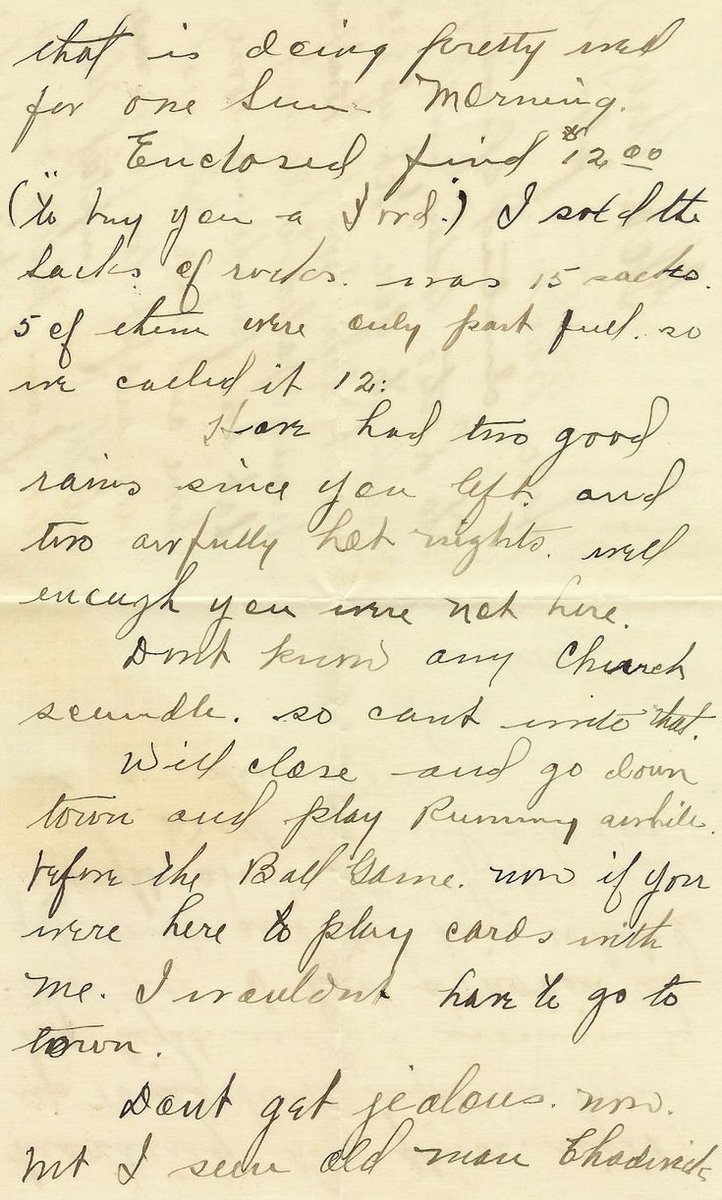 that is doing pretty well
for one Sun. Morning.
Enclosed find $12.00
("to buy you a Ford.") I sold the
Sacks of rocks. was 15 sacks.
5 of them were only part full. so
we called it 12:
Have had two good
rains since you left. and
two awfully hot nights. well
enough you were not here.
Dont know any Church
scandle. so cant write that.
Will close and go down
town and play Rummy awhile.
before the Ball Game. now if you
were here to play cards with
me. I wouldnt have to go to
town.
Dont get jealous. now.
but I seen old man Chadwick